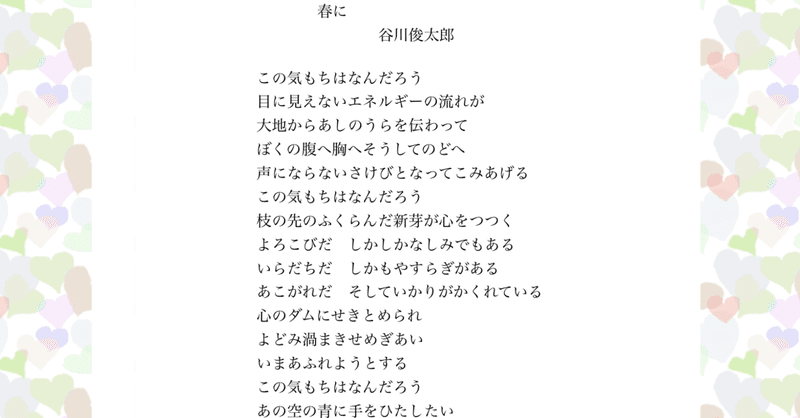 春に
谷川俊太郎
この気もちはなんだろう
目に見えないエネルギーの流れが
大地からあしのうらを伝わって
ぼくの腹へ胸へそうしてのどへ
声にならないさけびとなってこみあげる
この気もちはなんだろう
枝の先のふくらんだ新芽が心をつつく
よろこびだ　しかしかなしみでもある
いらだちだ　しかもやすらぎがある
あこがれだ　そしていかりがかくれている
心のダムにせきとめられ
よどみ渦まきせめぎあい
いまあふれようとする
この気もちはなんだろう
あの空の青に手をひたしたい